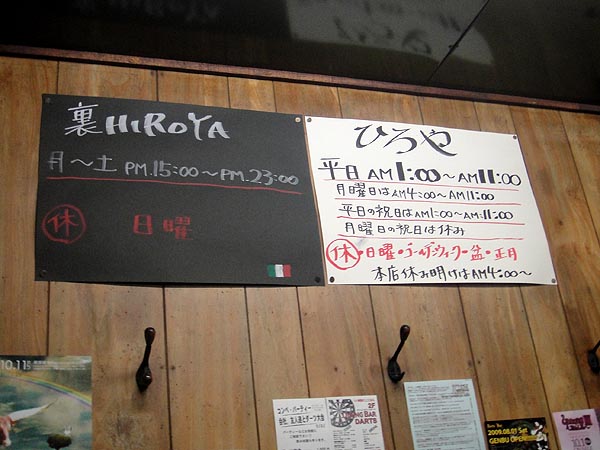 裏HIROYA
月～土 PM.15:00～PM.23:00
休 日曜
ひろや
平日 AM1:00～AM11:00
月曜日はAM4:00～AM11:00
平日の祝日はAM1:00～AM:11:00
月曜日の祝日は休み
休・日曜・ゴールデンウィーク・盆・正月
本店休み明けはAM4:00～
10.11
コンペ・パーティー
2F
BAR
DARTS
2009.08.05 Sat
GENBU OPEN
10.1